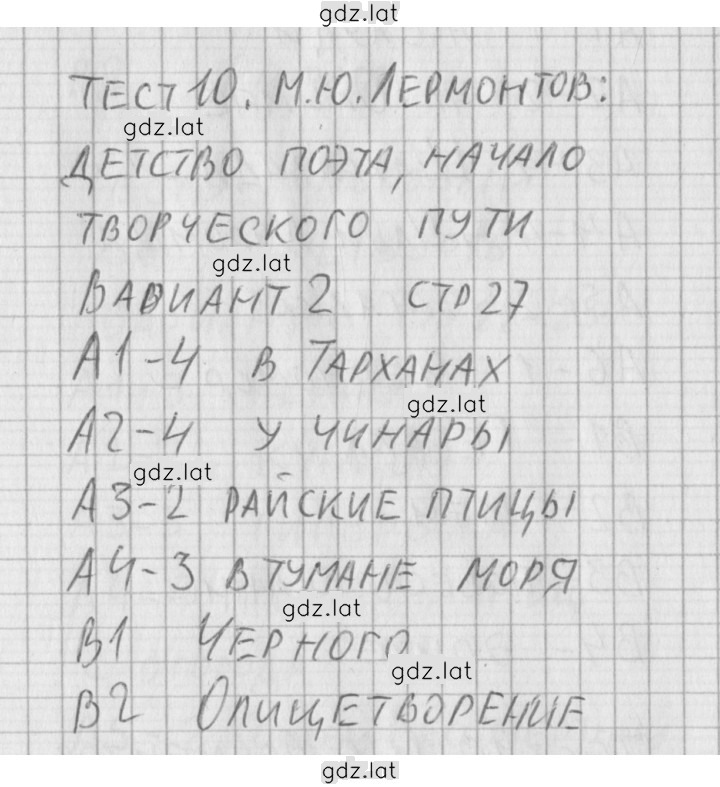 gdz.lat
ТЕСТ 10. М.Ю.ЛЕРМОНТОВ:
gdz.lat
ДЕТСТВО ПОЭТА, НАЧАЛО
ТВОРЧЕСКОГО ПУТИ
gdz.lat
ВАРИАНТ 2 СТР 27
А1-4 В ТАРХАНАХ
gdz.lat
А2-4 У ЧИНАРЫ
gdz.lat
А3-2 РАЙСКИЕ ПТИЦЫ
А4-3 В ТУМАНЕ МОРЯ
gdz.lat
В1 ЧЕРНОГО
gdz.lat
В2 ОЛИЦЕТВОРЕНИЕ
gdz.lat